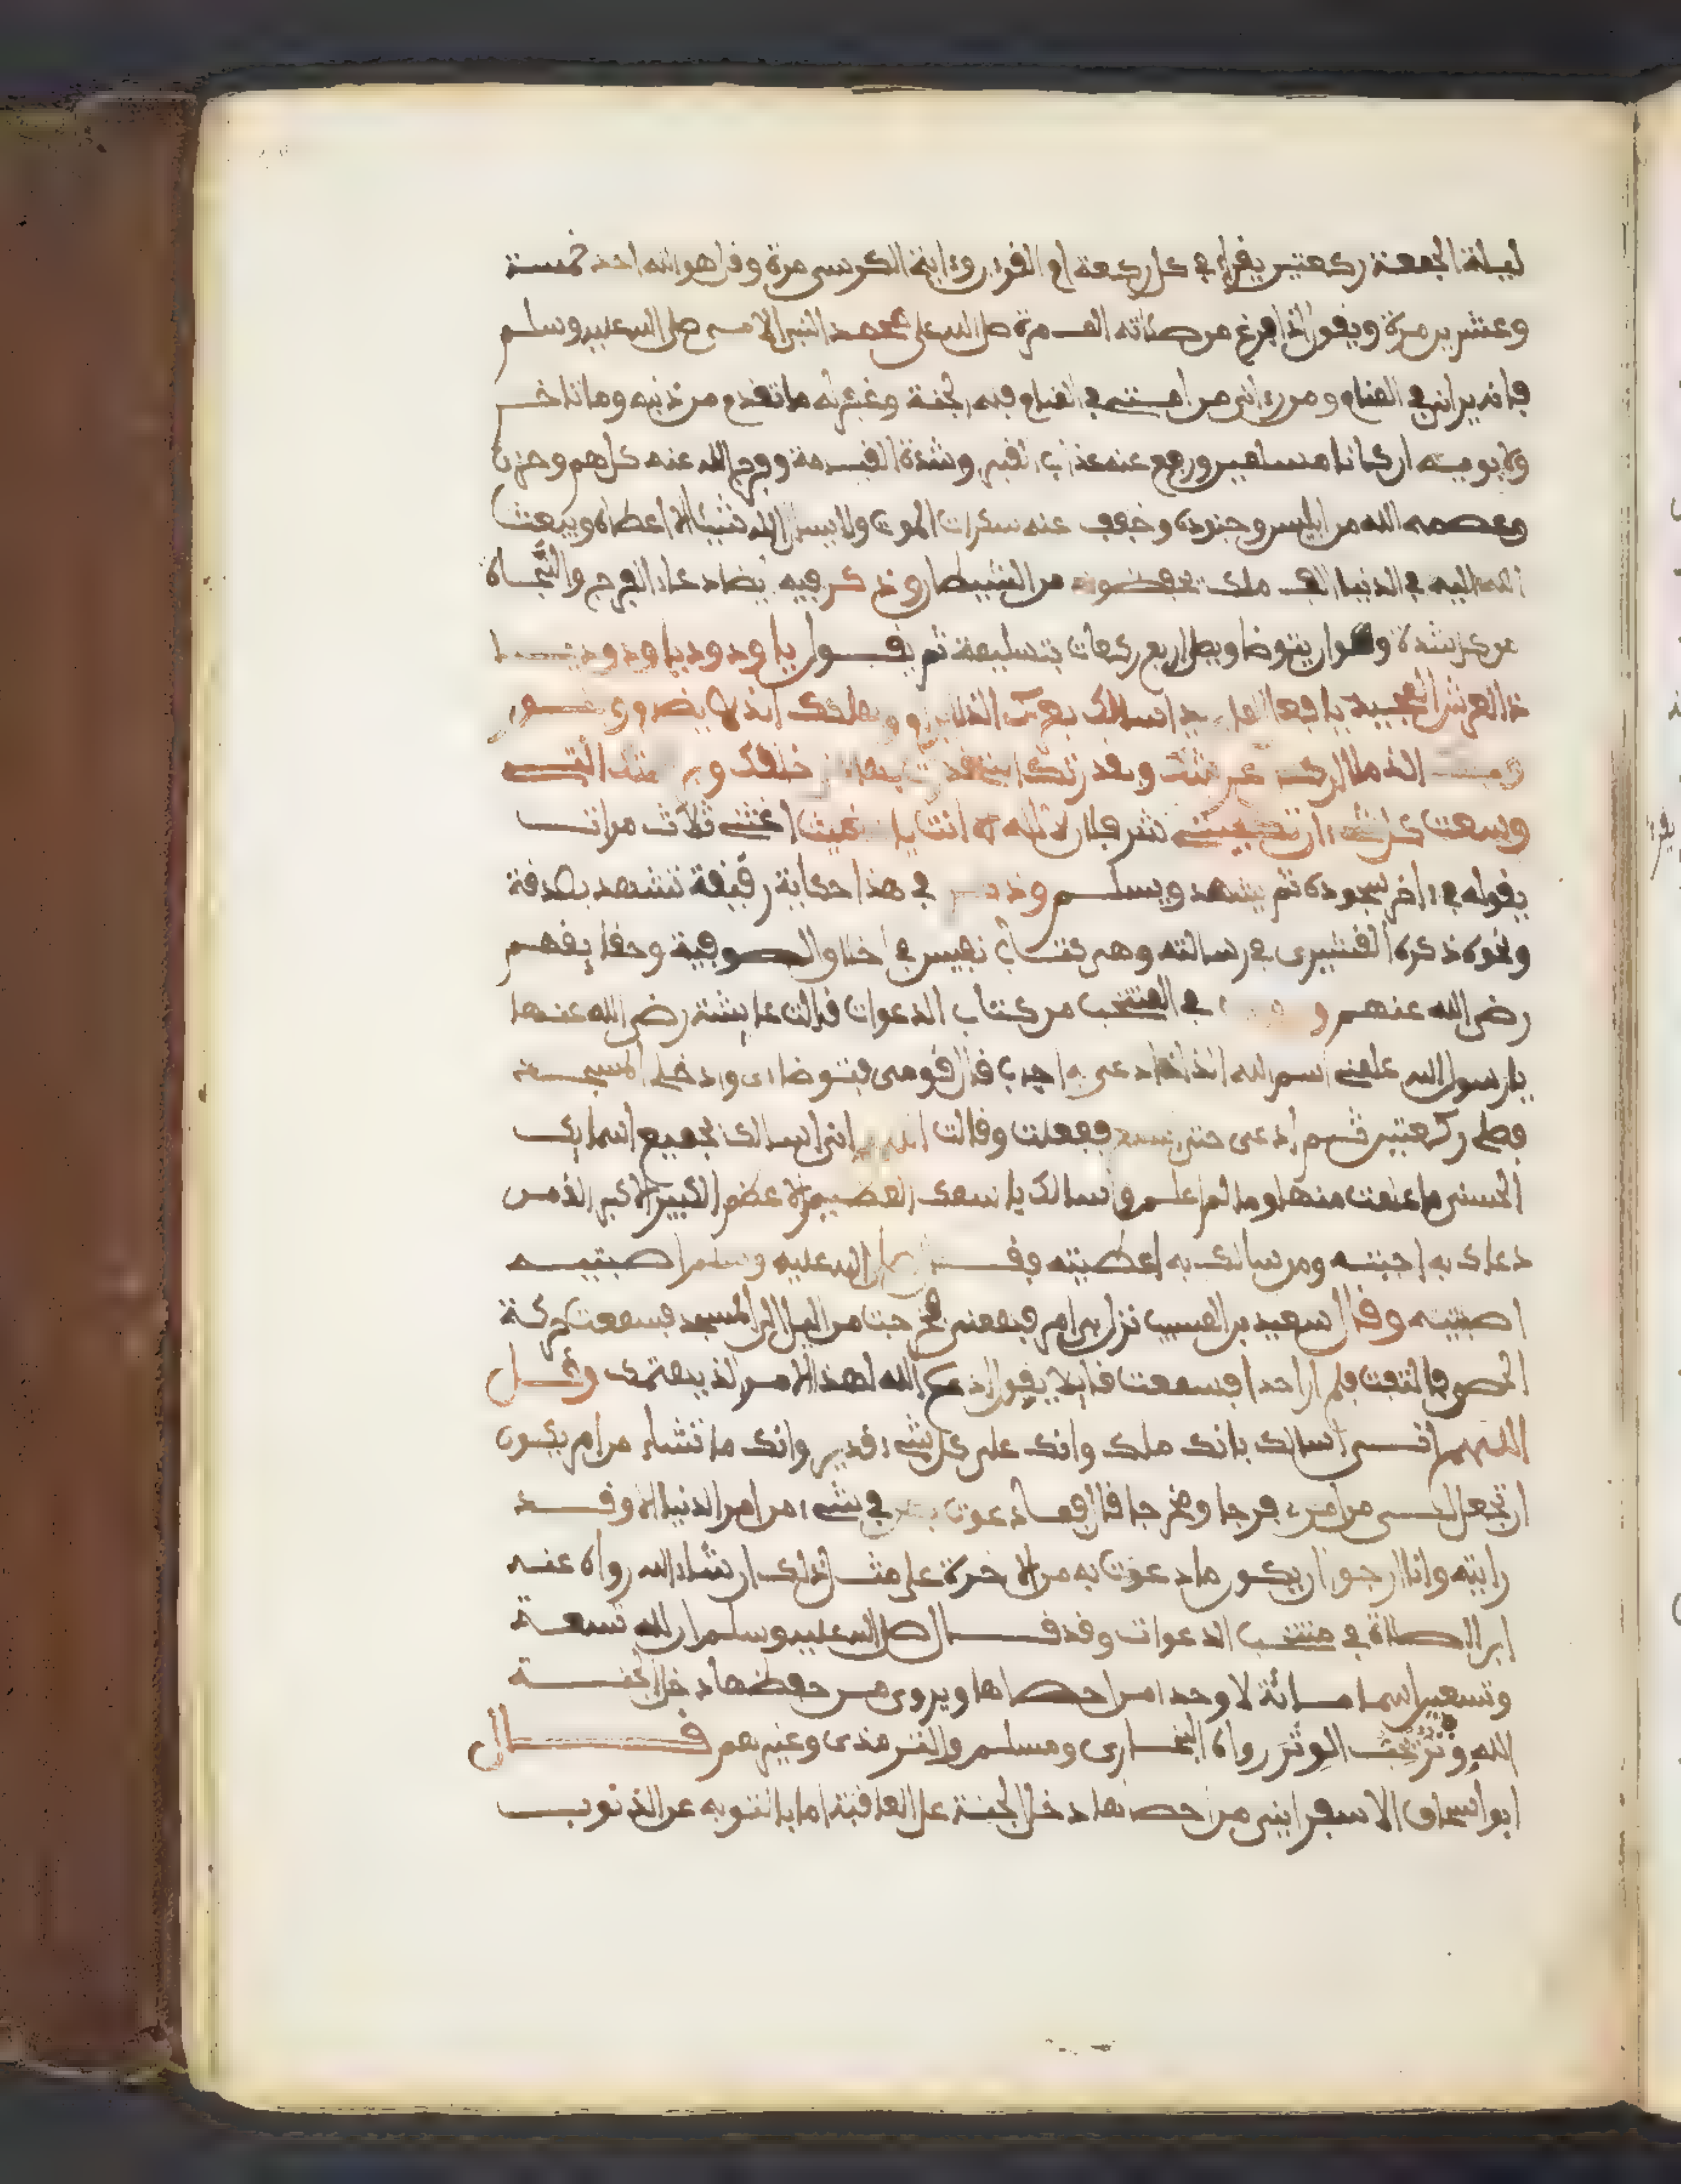 ليلة الجمعة ركعتين يقرأ في كل ركعة ام القرءان وءاية الكرسي مرة وقل هو الله احد خمسة
وعشرين مرة ويقول اذا فرغ من صلاته الف مرة صلى الله على محمد النبي الامي صلى الله عليه وسلم
فانه يراني في المنام ومن رءاني من امتي في المنام فله الجنة وغفر له ما تقدم من ذنبه وما تاخر
ولابويه ان كانا مسلمين ورفع عنه عذاب القبر وشدة القيامة وفرج الله عنه كل هم وحزن
وعصمه الله من ابليس وجنوده وخفف عنه سكرات الموت ولا يسال الله شيئا الا اعطاه ويبعث
الله اليه في الدنيا الف ملك يحفظونه من الشيطان وذكر فيه ايضا دعاء الفرج والنجاة
من كل شدة وهو ان يتوضا ويصل اربع ركعات بتسليمة ثم يقول يا ودود يا ودود يا
ذا العرش المجيد يا فعال لما يريد اسالك بعزك الذي لا يرام وبملكك الذي لا يضام وبنور
وجهك الذي ملا اركان عرشك وبقدرتك التي قدرت بها على خلقك وبرحمتك التي
وسعت كل شيء ان شر فلان لا اله الا انت يا مغيث اغثني ثلاث مرات
يقوله في ءاخر سجوده ثم يتشهد ويسلم وذكر في هذا حكاية رقيقة تشهد بصدقه
ونحوه ذكره القشيري في رسالته وهي كتاب نفيس في اخلاق الصوفية وحقايقهم
رضي الله عنهم و في المنتخب من كتاب الدعوات قالت عايشة رضي الله عنها
يا رسول الله علمني اسم الله الذي اذا دعي به اجاب قال قومي فتوضاي وادخلي المسجد
فصلي ركعتين ثم ادعي حتى اسمع ففعلت وقالت اللهم اني اسالك بجميع اسمايك
الحسنى ما علمت منها وما لم اعلم واسالك باسمك العظيم الاعظم الكبير الاكبر الذي من
دعاك به اجبته ومن سالك به اعطيته فقال صلى الله عليه وسلم اصبتيه
اصبتيه وقال سعيد بن المسيب نزل بي امر فخرجت من الليل الى المسجد فسمعت حركة
الحصى فالتفت فلم ار احدا فسمعت قايلا يقول ادع الله لهذا الامر الذي يهمك وقل
اللهم اني اسالك بانك ملك وانك على كل شيء قدير وانك ما تشاء من امر يكون
ان تجعل لي من امري فرجا ومخرجا قال فما دعوت به في شيء من امر الدنيا الا وقد
رايته وانا ارجو ان يكون ما دعوت به من الاخرة على مثل ذلك ان شاء الله رواه عنه
ابن الصلاة في منتخب الدعوات وقد قال صلى الله عليه وسلم ان لله تسعة
وتسعين اسما مائة الا وحدا من احصاها ويروى من حفظها دخل الجنة
الله وتر يحب الوتر رواه البخاري ومسلم والترمذي وغيرهم قال
ابو اسحاق الاسفرايني من احصاها دخل الجنة على العافية اما بالتوبة عن الذنوب